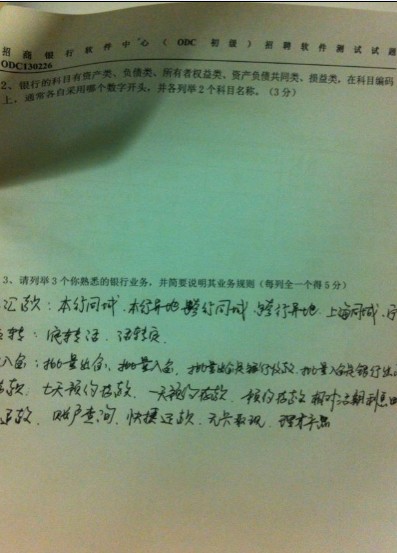 招商银行软件中心(ODC 初级)招聘软件测试试题
ODC130226
2、银行的科目有资产类、负债类、所有者权益类、资产负债共同类、损益类,在科目编码
上,通常各自采用哪个数字开头,并各列举2个科目名称。(3分)
3、请列举3个你熟悉的银行业务,并简要说明其业务规则(每列全一个得5分)
汇款:本行同城 本行异地 跨行同城 跨行异地 上海同城
转:定转活 活转定
批量出金 批量入金
七天预约存款 一天预约存款 预约存款
还款 账户查询 快捷还款 无卡取现 理财产品